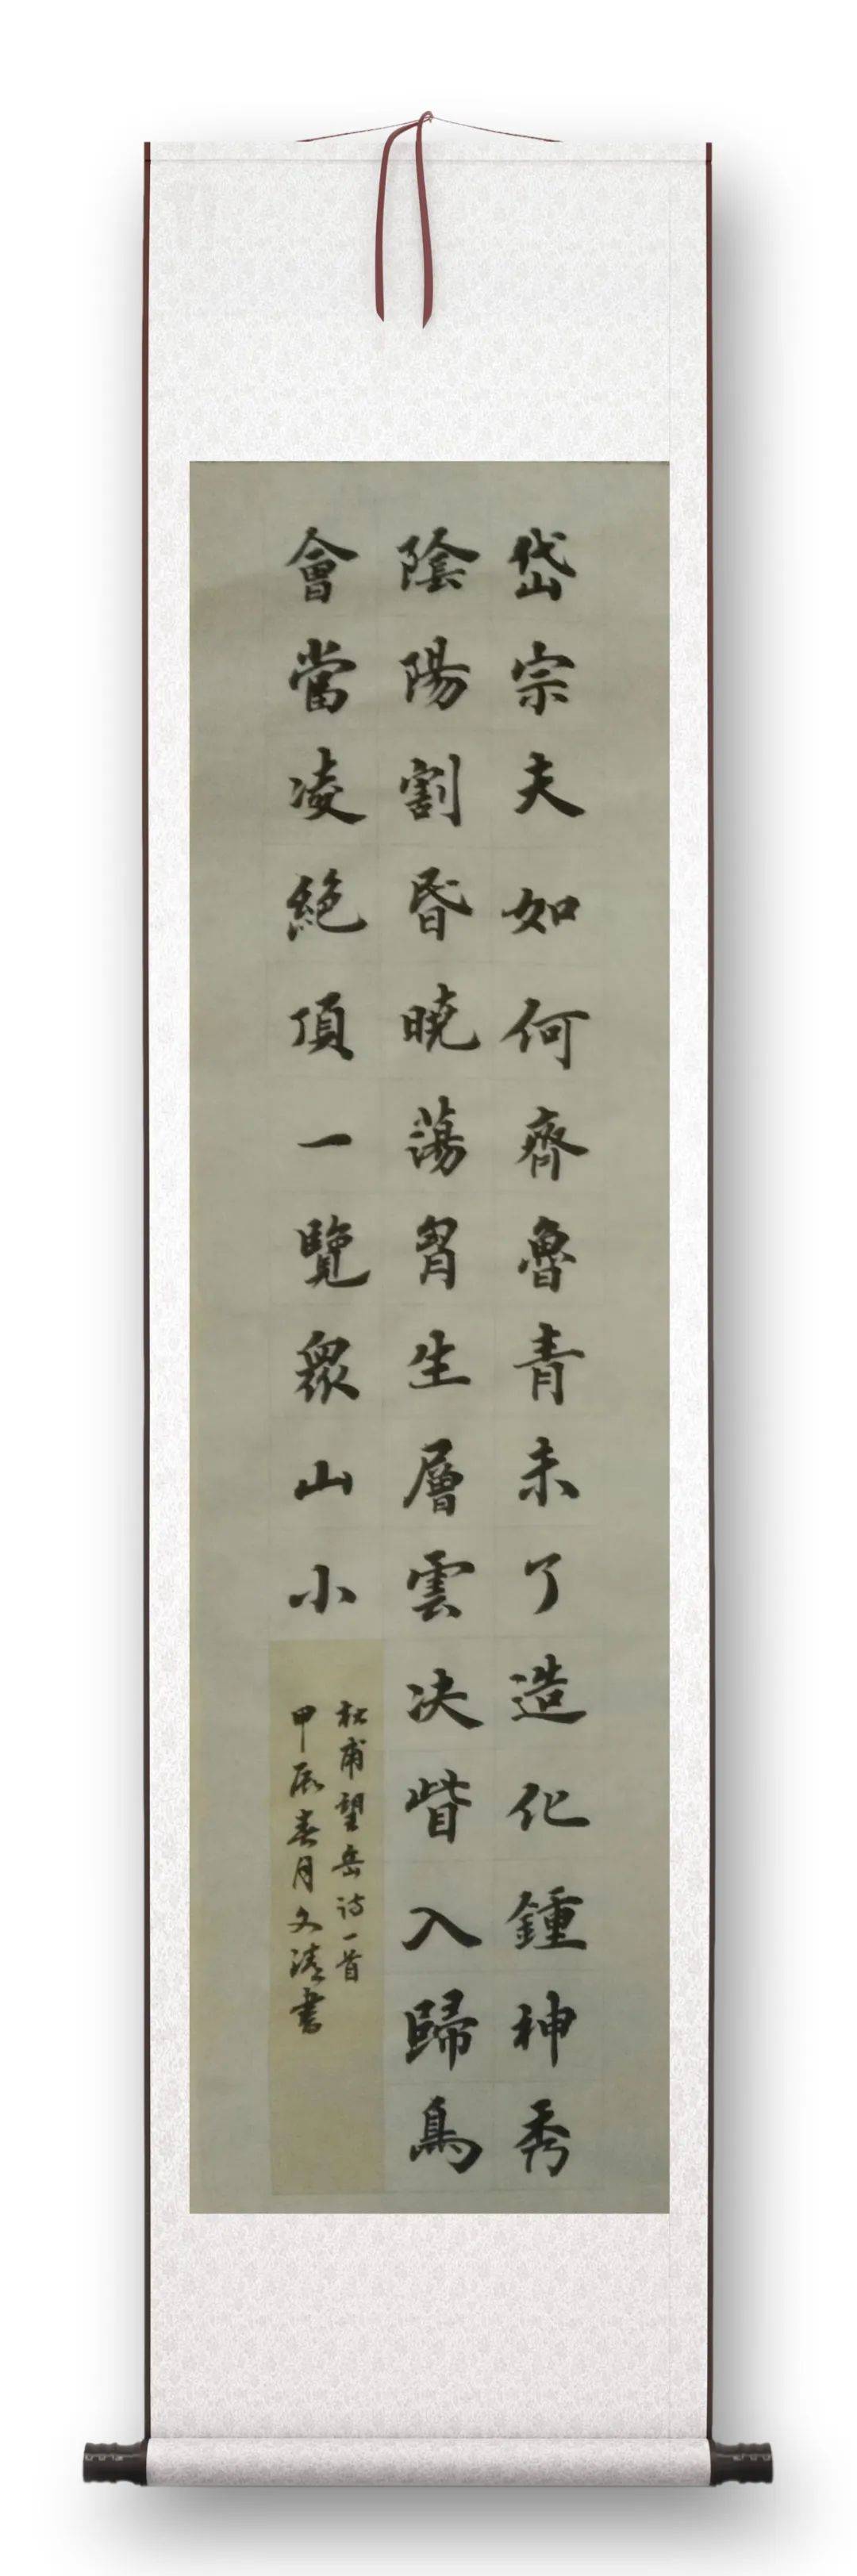 岱宗夫如何齊魯青未了造化鍾神秀
陰陽割昏曉蕩胷生層雲决眥入歸鳥
會當凌絕頂一覽衆山小
杜甫望岳诗一首
甲辰春月文涛書